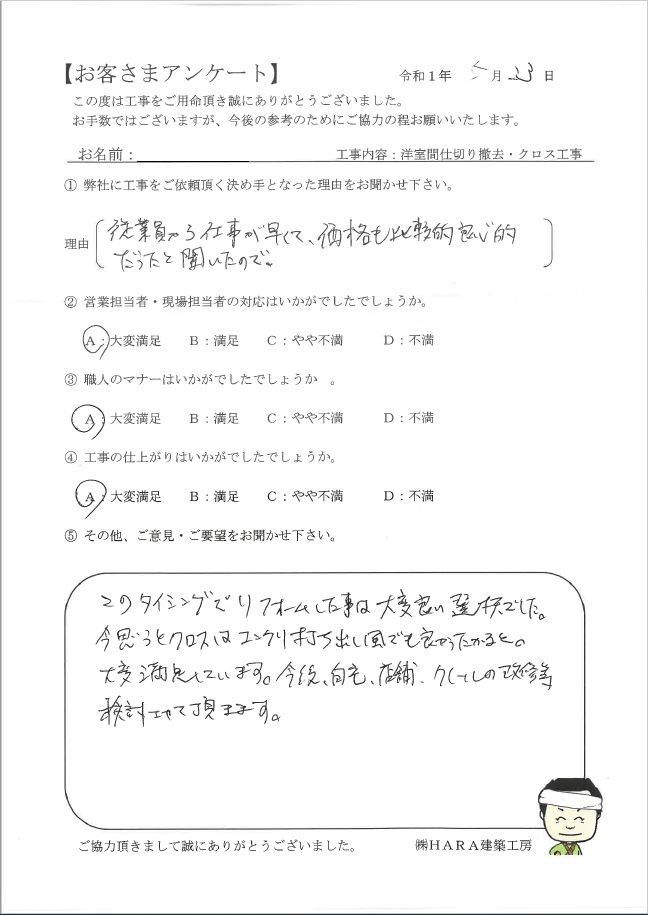 【お客さまアンケート】
令和1年 5月23日
この度は工事をご用命頂き誠にありがとうございました。
お手数ではございますが、今後の参考のためにご協力の程お願いいたします。
お名前： 工事内容：洋室間仕切り撤去・クロス工事
① 弊社に工事をご依頼頂く決め手となった理由をお聞かせ下さい。
理由 従業員から仕事が早くて、価格も比較的良心的
だったと聞いたので。
② 営業担当者・現場担当者の対応はいかがでしたでしょうか。
A：大変満足 B：満足 C：やや不満 D：不満
③ 職人のマナーはいかがでしたでしょうか 。
A：大変満足 B：満足 C：やや不満 D：不満
④ 工事の仕上がりはいかがでしたでしょうか。
A：大変満足 B：満足 C：やや不満 D：不満
⑤ その他、ご意見・ご要望をお聞かせ下さい。
このタイミングでリフォームした事は大変良い選択でした。
今思うとクロスはコンクリ打ち出し風でも良かったかなと。
大変満足しています。今後、自宅、店舗、の改修等
検討させて頂きます。
ご協力頂きまして誠にありがとうございました。 ㈱HARA建築工房